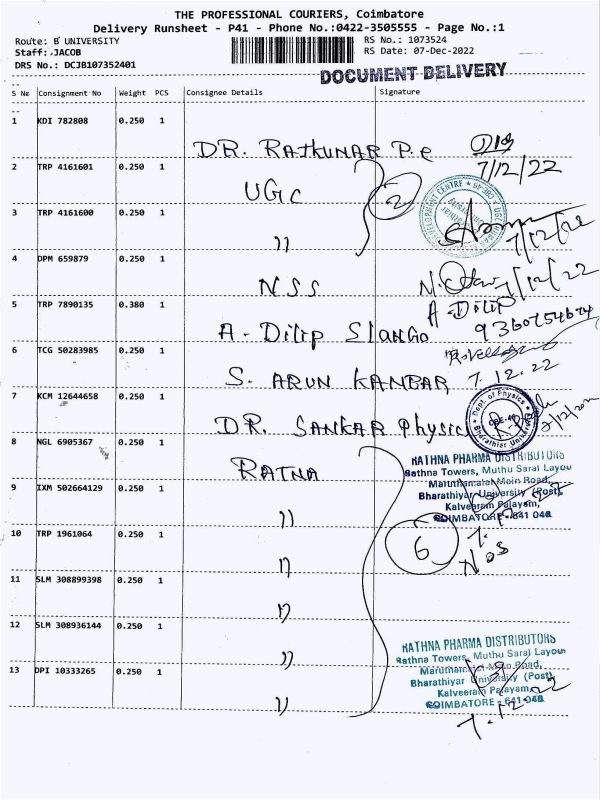 THE PROFESSIONAL COURIERS, Coimbatore
Delivery Runsheet - P41 - Phone No.:0422-3505555 - Page No.:1
Route: B UNIVERSITY
RS No.: 1073524
Staff: JACOB
RS Date: 07-Dec-2022
DRS No.: DCJB107352401
DOCUMENT DELIVERY
S No Consignment No Weight PCS Consignee Details Signature
1 KDI 782808 0.250 1
DR. RAJKUMAR P.e
7/12/22
2 TRP 4161601 0.250 1
UGC
2
3 TRP 4161600 0.250 1
"
7/12/22
4 DPM 659879 0.250 1
NSS
7/12/22
5 TRP 7890135 0.380 1
A - Dilip SlanGo
A - Dilip
9360754674
6 TCG 50283985 0.250 1
S. ARUN KANBAR
7.12.22
7 KCM 12644658 0.250 1
DR. SANKAR Physic
Dept. of Physics
Bharathiar University
8 NGL 6905367 0.250 1
RATNA
RATHNA PHARMA DISTRIBUTORS
Rathna Towers, Muthu Saral Layou
Maruthamalai Main Road,
Bharathiyar University (Post),
Kalveeram Palayam,
COIMBATORE - 641 046
9 IXM 502664129 0.250 1
"
10 TRP 1961064 0.250 1
"
6
Nos
11 SLM 308899398 0.250 1
"
12 SLM 308936144 0.250 1
"
RATHNA PHARMA DISTRIBUTORS
Rathna Towers, Muthu Saral Layou
Maruthamalai Main Road,
Bharathiyar University (Post),
Kalveeram Palayam,
COIMBATORE - 641 046
13 DPI 10333265 0.250 1
"
7.12.22